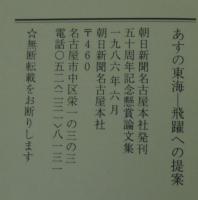 あすの東海―飛躍への提案
朝日新聞名古屋本社発刊
五十周年記念懸賞論文集
一九八六年六月
朝日新聞名古屋本社
〒460
名古屋市中区栄一の三の三
電話〇五二〈二三一〉八一三一
☆無断転載をお断りします